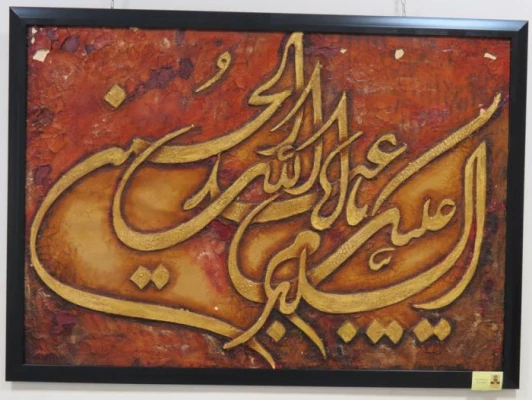 السلام علیک یا اباعبدالله الحسین